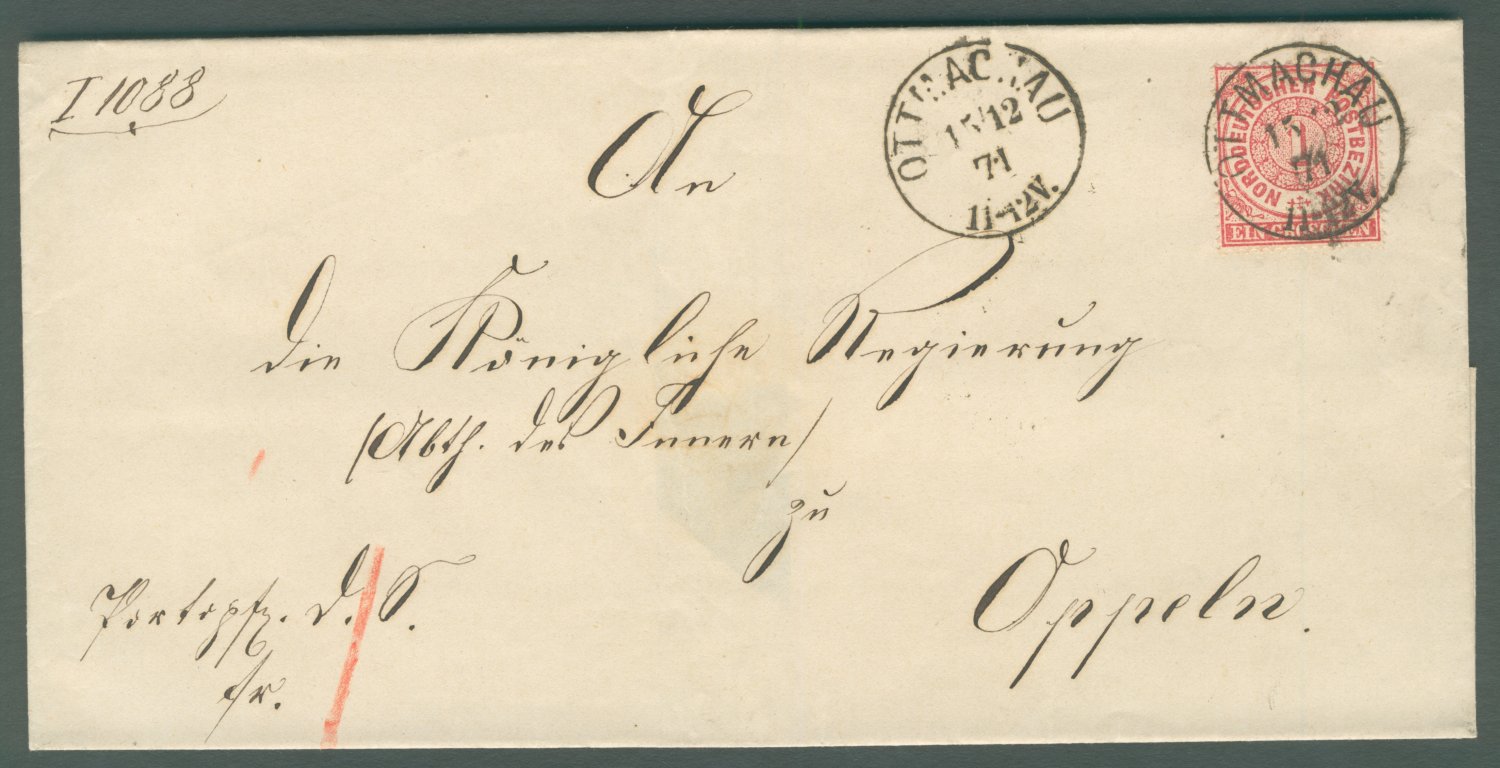 I 1088
An
die Königliche Regierung
/Abth. des Innern/
zu
Oppeln.
Portopfl. D. S.
fr.
OTTMACHAU
15 12
71
11-12V.
NORDDEUTSCHER POSTBEZIRK
1
EIN GROSCHEN
OTTMACHAU
15 12
71
11-12V.